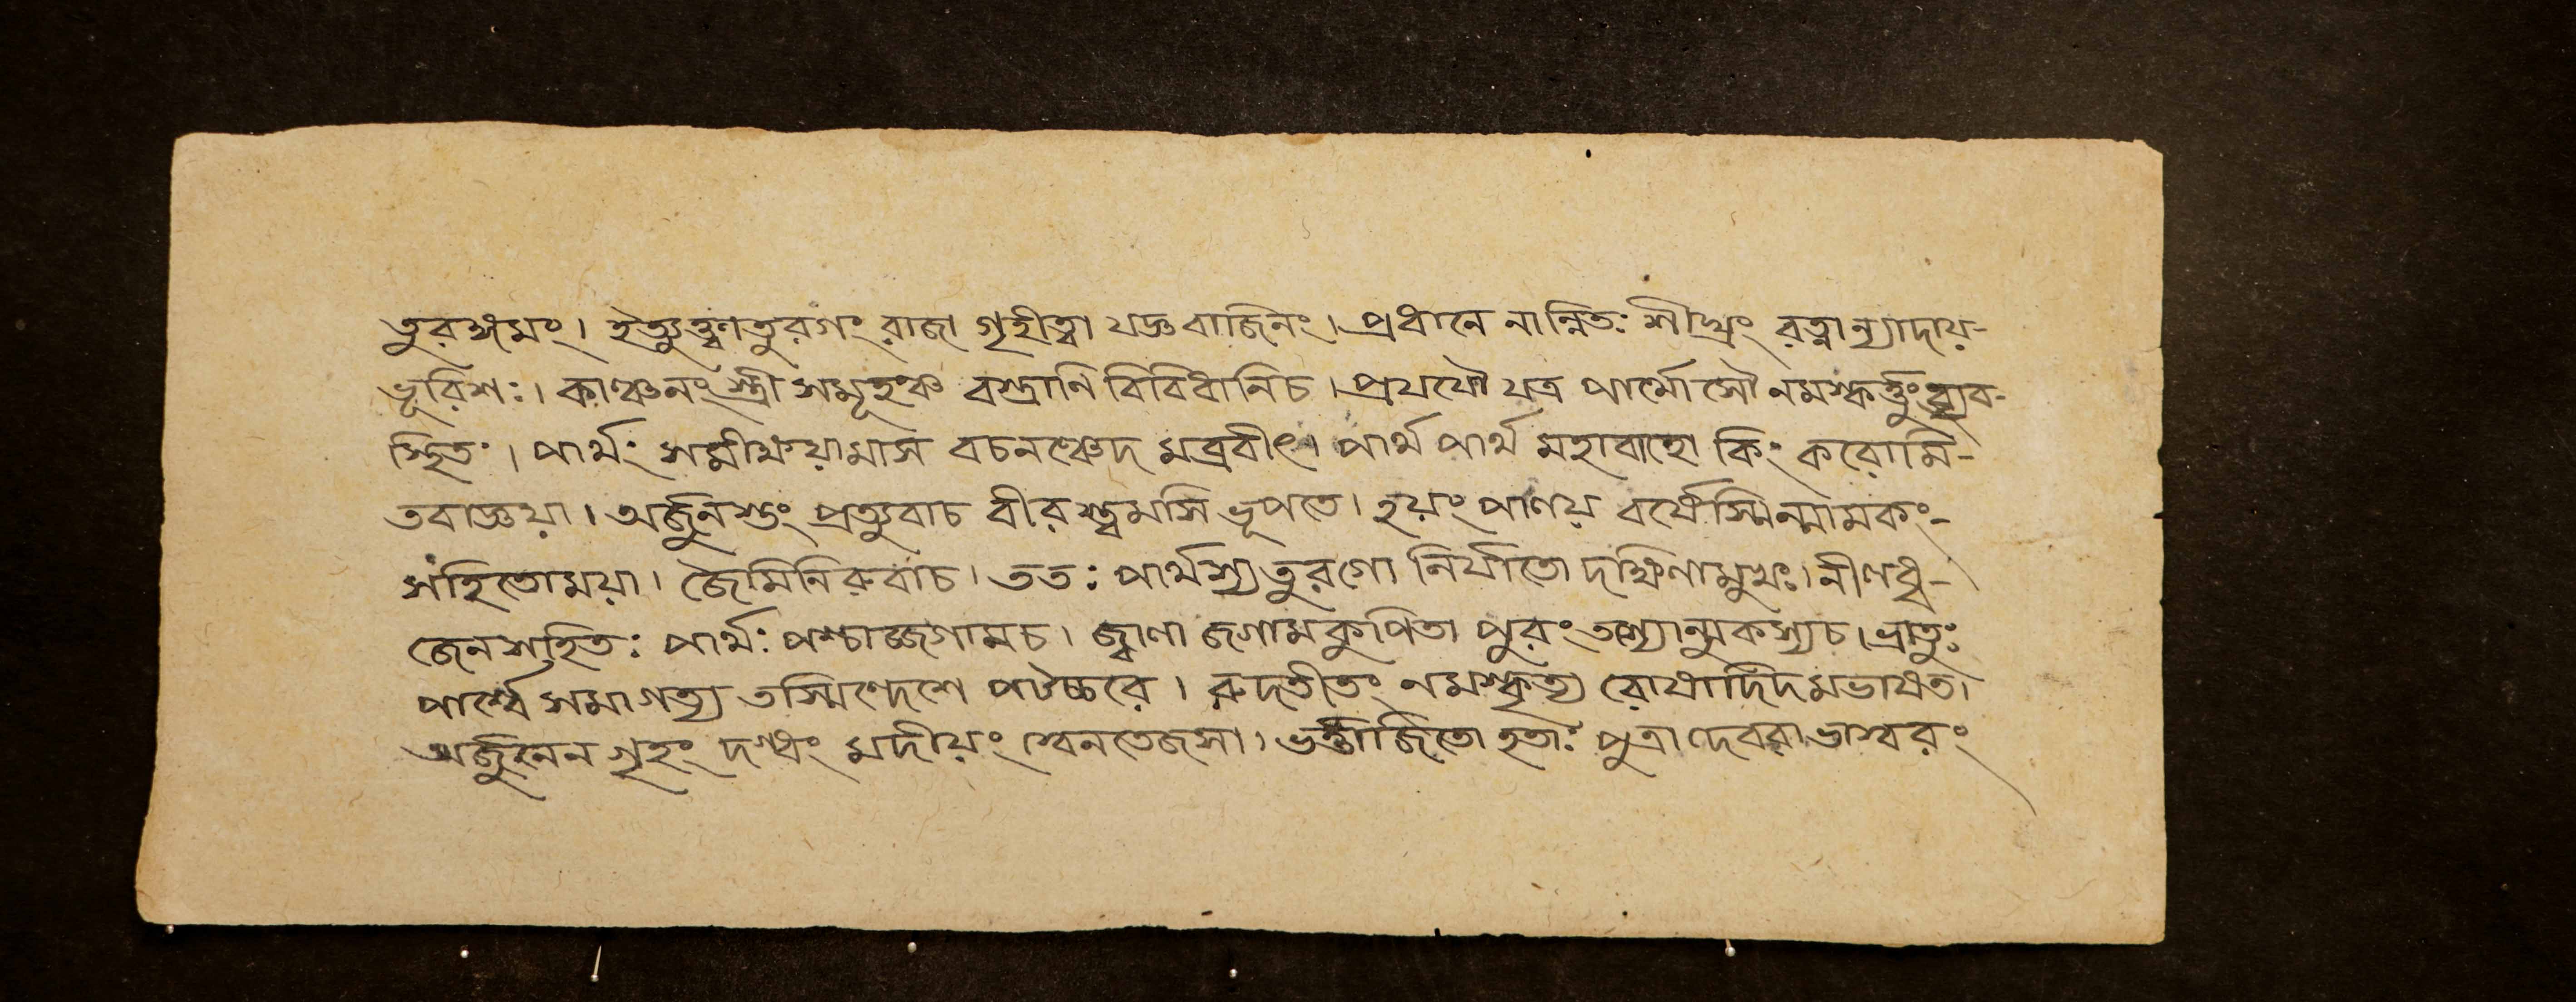 তুরঙ্গমং। ইত্যুক্ত্বাতুরগং রাজা গৃহীত্বা যজ্ঞবাজিনং। প্রধানে নান্বিতঃ শীঘ্রং রত্নান্যাদায়-
ভূরিশঃ। কাঞ্চনং স্ত্রী সমূহঞ্চ বস্ত্রাণি বিবিধানিচ। প্রযযৌ যত্র পার্থোসৌ নমস্কর্ত্তুং ব্যব-
স্থিতঃ। পার্থং সমীক্ষয়ামাস বচনঞ্চেদ মব্রবীৎ। পার্থ পার্থ মহাবাহো কিং করোমি-
তবাজ্ঞয়া। অর্জুনস্তং প্রত্যুবাচ বীরস্ত্বমসি ভূপতে। হয়ং পালয় বর্ষেস্মিন্মামকং-
সংহিতোময়া। জৈমিনিরুবাচ। ততঃ পার্থস্যতুরগো নির্যাতো দক্ষিণামুখঃ। নীলধ্ব-
জেনসহিতঃ পার্থঃ পশ্চাজ্জগামচ। জ্বালা জগামকুপিতা পুরং তস্যোন্মুকস্যচ। ভ্রাতুঃ
পার্শ্বে সমাগত্য তস্মিন্দেশে পটচ্চরে। রুদতীতং নমস্কৃত্য রোষাদিদমভাষত।
অর্জুনেন গৃহং দগ্ধং মদীয়ং স্বেনতেজসা। ভর্ত্তাজিতো হতাঃ পুত্রা দেবরাভাস্বরং